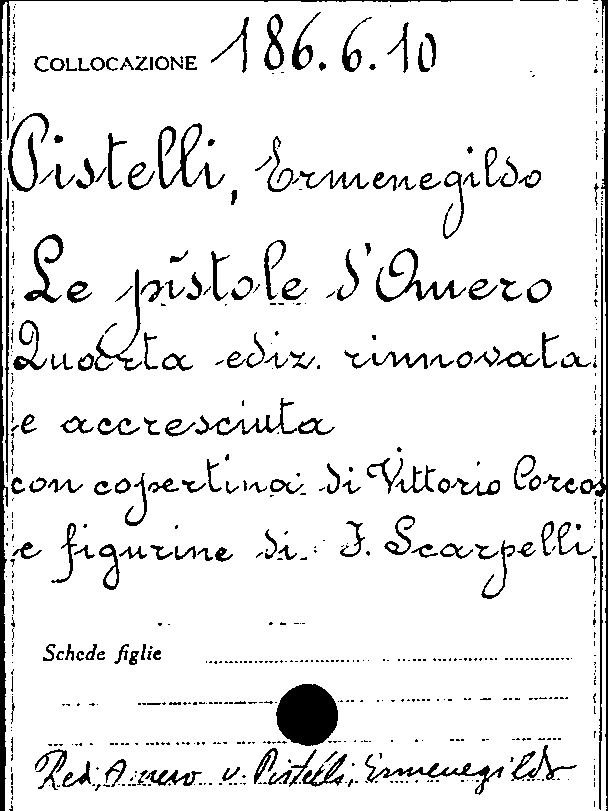 COLLOCAZIONE 186.6.10
Pistelli, Ermenegildo
Le pìstole d'Omero
Quarta ediz. rinnovata
e accresciuta
con copertina di Vittorio Corcos
e figurine di F. Scarpelli
Schede figlie
Red, Omero v. Pistelli, Ermenegildo